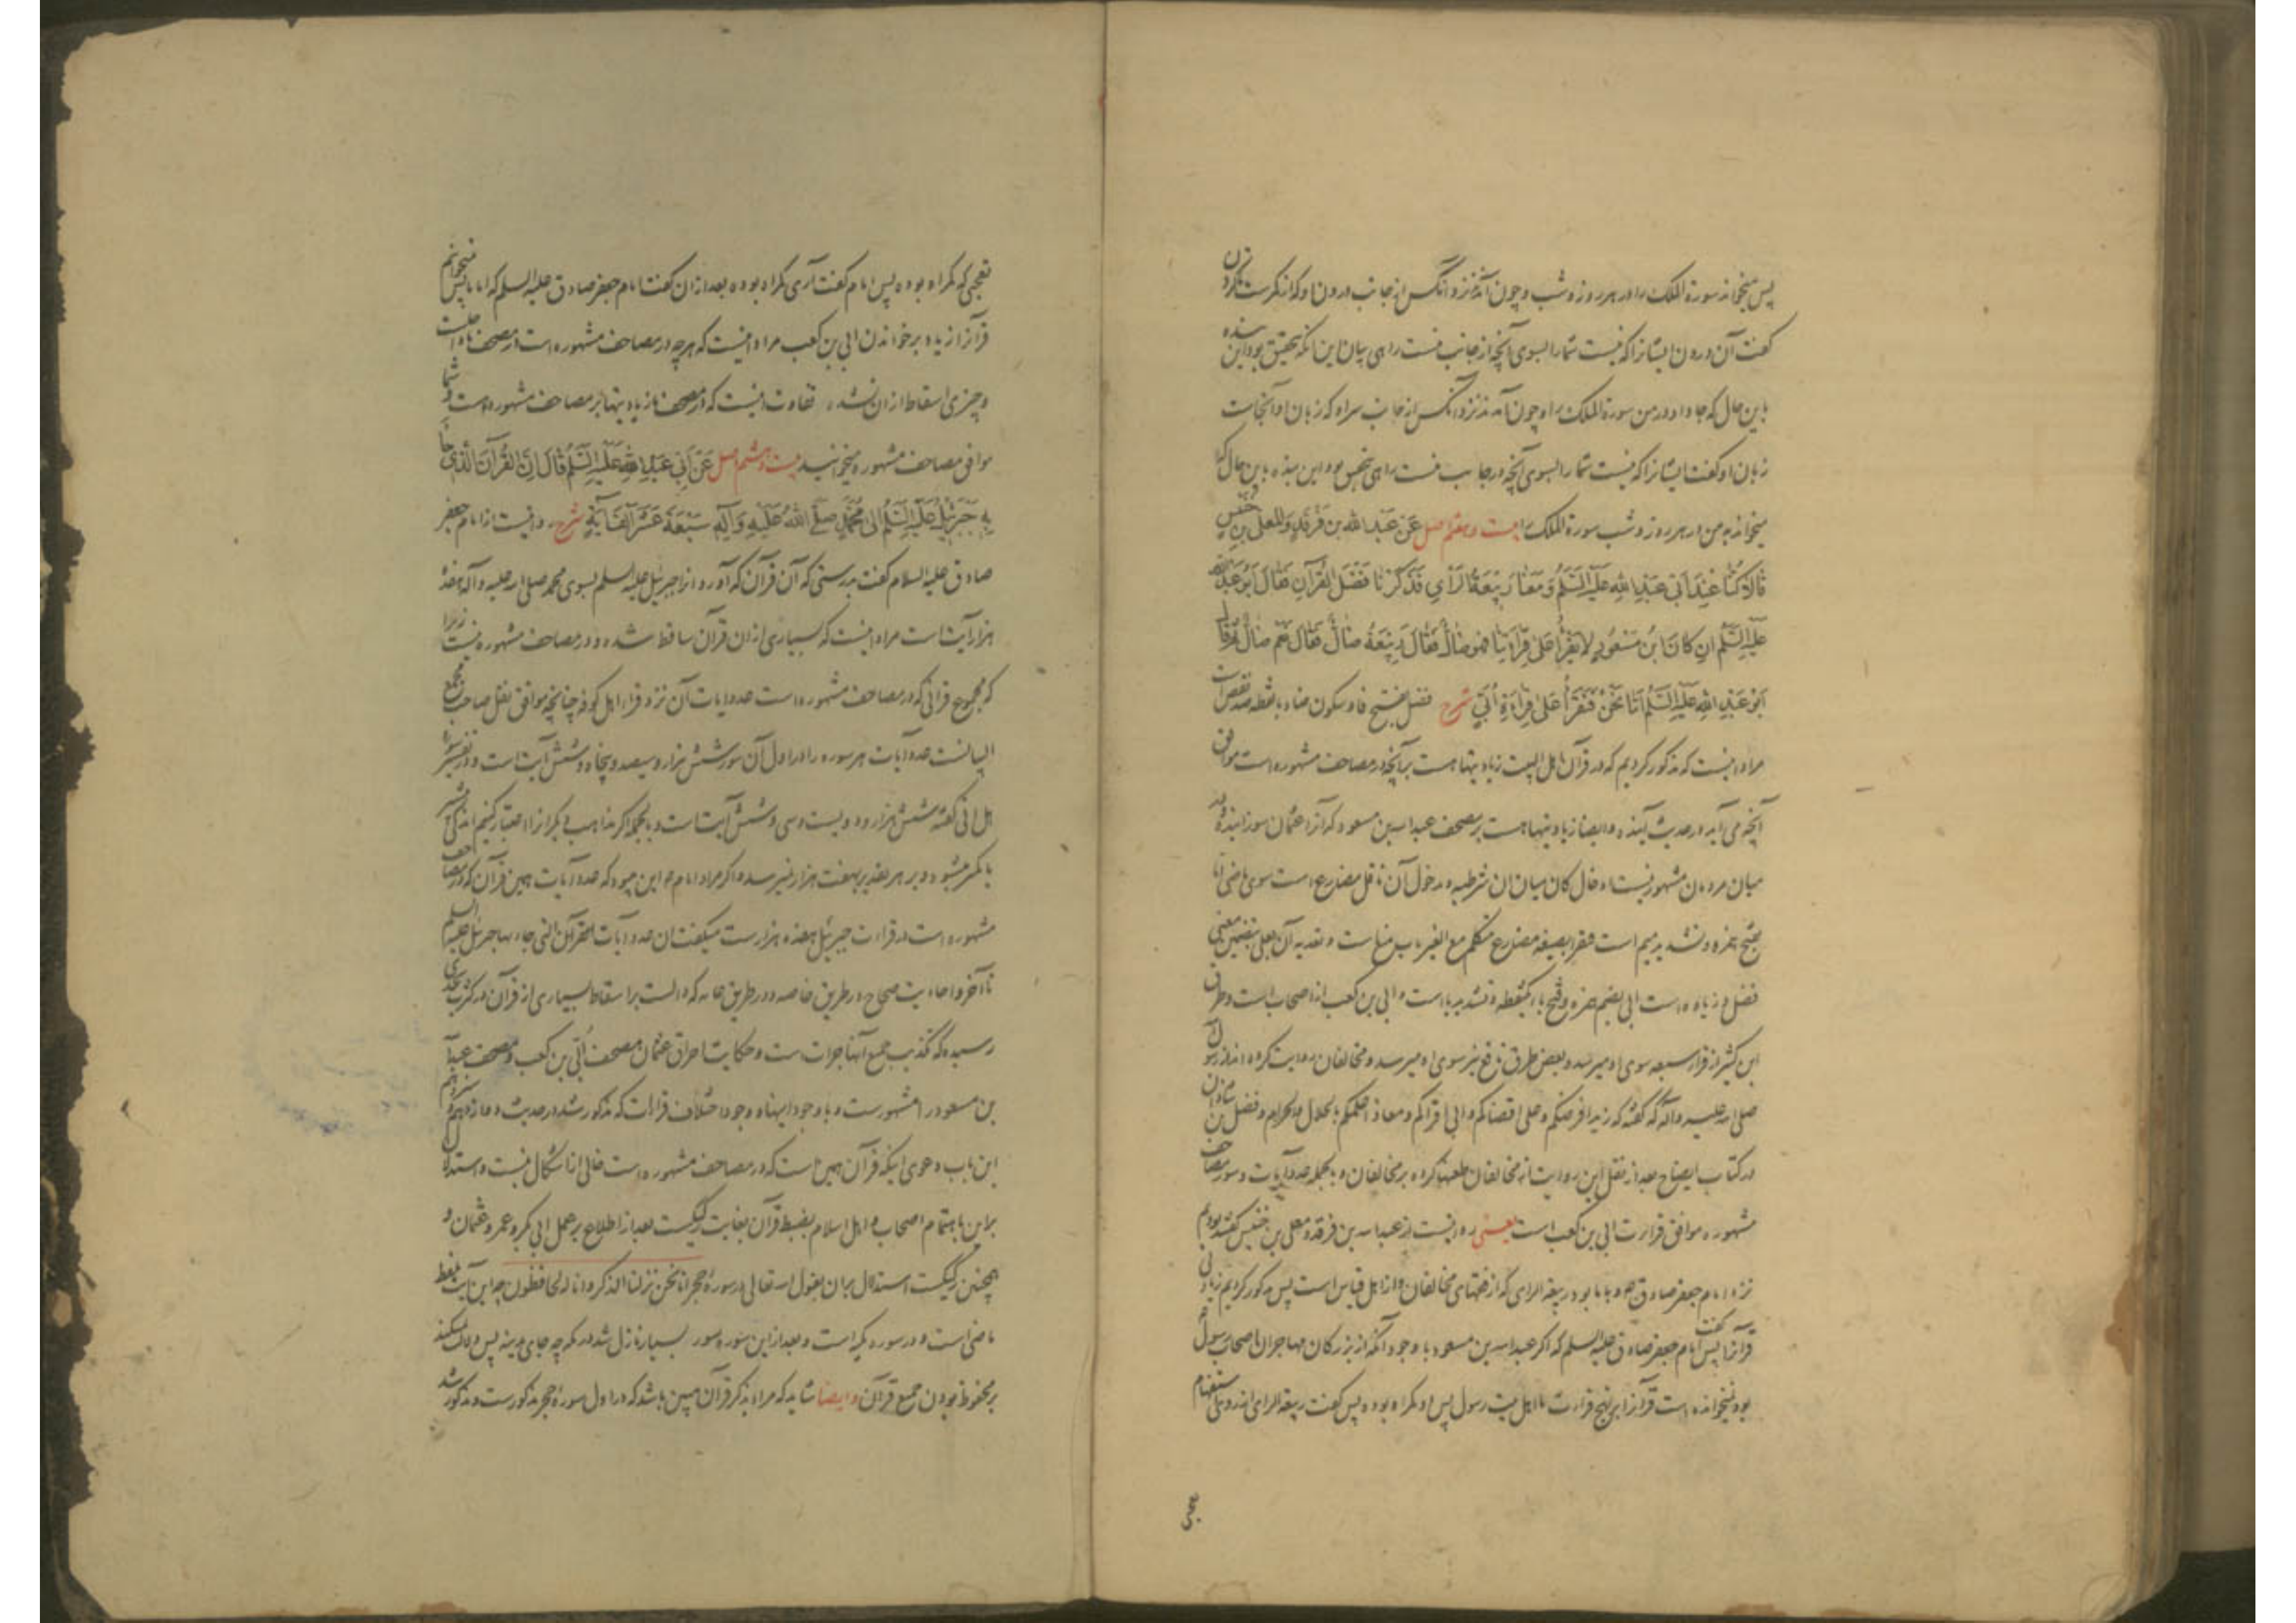 پس میخواند سورة الملک را در هر روز و شب و چون آمد نزد او آنکس از جانب درون او که نکیرست
کفت آن درون ایشانرا که نیست شما را بسوی آنچه از جانب منست راهی بیان این آنکه بتحقیق بود این بنده
باین حال که جا داد در من سورة الملک را و چون آمد نزد او آنکس از جانب سر او که زبان او آنجاست
زبان او کفت ایشانرا که نیست شما را بسوی آنچه در جانب منست راهی بود این بنده باین حال که
میخواند به من در هر روز و شب سورة الملک را بیست و هفتم اصل عَنْ عَبْدِ الله بن فَرْقَدٍ وَالمعلی بن خنیس
قَالا کُنَّا عِنْدَ اَبی عَبْدِ اللهِ عَلَیْهِ السَّلَمُ وَ مَعَنا رَبِیْعَةُ الرَّأیِ فَذَکَرْنا فَضْلَ القُرْآنِ فَقَالَ اَبُو عَبْدِ الله
عَلَیْهِ السَّلَمُ اِن کانَ ابْنُ مَسْعُودٍ لا یَقْرَأُ عَلی قِرَاءَتِنا فهو ضالٌّ فَقَالَ رَبِیْعَةُ ضالٌّ فَقَالَ نَعَمْ ضالٌّ ثم قال
اَبُو عَبْدِ اللهِ عَلَیْهِ السَّلَمُ اَمَّا نَحْنُ فَنَقْرَأُ عَلی قِراءَةِ اُبَیٍّ شرح فضل بفتح فا و سکون ضاد با نقطه ضد نقص است
مراد اینست که مذکور کردیم که در قرآن اهل البیت زیادتیها هست بر آنچه در مصاحف مشهوره است موافق
آنچه می آید در حدیث آینده و ایضا زیادتیها هست بر مصحف عبدالله بن مسعود که آنرا عثمان سوزانیده و در
میان مردمان مشهور نیست ادخال کان میان ان شرطیه و مدخول آن ناقل مضارع است سوی ماضی اما
بفتح همزه و تشدید میم است نقرأ بصیغه مضارع متکلم مع الغیر باب منع است و تعدیه آن بعلی بتضمین معنی
فضل و زیاده است ابی بضم همزه و فتح با یکنقطه و تشدید یا است و ابی بن کعب از اصحاب است و طرق
ابن کثیر از قراء سبعه سوی او میرسد و بعض طرق نافع نیز سوی او میرسد و مخالفان روایت کرده اند از رسول
صلی الله علیه و آله که کفته که زید افرضکم و علی اقضاکم و ابی اقرأکم و معاذ اعلمکم بالحلال والحرام و فضل بن شاذان
در کتاب ایضاح بعد از نقل این روایت از مخالفان طعنها کرده بر مخالفان و بالجمله عدد آیات و سور مصاحف
مشهوره موافق قراءت ابی بن کعب است یعنی روایت از عبدالله بن فرقد و معلی بن خنیس کفتند بودیم
نزد امام جعفر صادق و با ما بود ربیعة الرای که از فقهای مخالفان و از اهل قیاس است پس مذکور کردیم زیادتی
قرآنرا پس کفت امام جعفر صادق علیه السلم که اکر عبدالله بن مسعود با وجود آنکه از بزرکان مهاجران و اصحاب رسول
بود نمیخوانده است قرآنرا بر نهج قراءت ما اهل بیت رسول پس او کمراه بوده پس کفت ربیعة الرای
تعجبی که کمراه بوده پس امام کفت آری کمراه بوده بعد از ان کفت امام جعفر صادق علیه السلم که اما ما پس میخوانیم
قرآنرا زیاده بر خواندن ابی بن کعب مراد اینست که هر چه در مصاحف مشهوره است در مصحف ما هست
و چیزی اسقاط از ان نشده تفاوت اینست که در مصحف ما زیادتیها بر مصاحف مشهوره هست و شما
موافق مصاحف مشهوره میخوانید بیست و هشتم اصل عَنْ اَبی عَبْدِ اللهِ عَلَیْهِ السَّلَمُ قَالَ اِنَّ القُرْآنَ الَّذی جاءَ
بِهِ جَبْرَئِیلُ عَلَیْهِ السَّلَمُ اِلی مُحَمَّدٍ صَلَّی اللهُ عَلَیْهِ وَ آلِهِ سَبْعَةَ عَشَرَ اَلْفَ آیَةٍ شرح روایت از امام جعفر
صادق علیه السلام کفت بدرستی که آن قرآن که آورد آنرا جبرئیل علیه السلم بسوی محمد صلی الله علیه و آله هفده
هزار آیت است مراد اینست که بسیاری از ان قرآن ساقط شده و در مصاحف مشهوره نیست زیرا
که مجموع قرآنی که در مصاحف مشهوره است عدد آیات آن نزد قراء اهل کوفه چنانچه موافق نقل صاحب مجمع
البیانست عدد آیات هر سوره را در اول آن سوره شش هزار و سیصد و پنجاه و شش آیت است و در تفسیر سورة
هل اتی کفته شش هزار و دویست و سی و شش آیت است و بالجمله اکر مذاهب دیکر را اعتبار کنیم اندکی بیشتر
یا کمتر میشود و بر هر تقدیر بهفت هزار نمیرسد و اکر مراد امام این میبود که عدد آیات همین قرآن که در مصاحف
مشهوره است در قراءت جبرئیل هفده هزارست میکفت ان عدد آیات القرآن التی جاء بها جبرئیل علیه السلم
تا آخر و احادیث صحاح در طریق خاصه و در طریق عامه که دالست بر اسقاط بسیاری از قرآن در کثرت بحدی
رسیده که تکذیب جمیع آنها جراتست و حکایت احراق عثمان مصحف اُبَیّ بن کعب و مصحف عبدالله
بن مسعود را مشهورست و با وجود اینها و وجود اختلاف قراءات که مذکور شد در حدیث دوازدهم
این باب دعوی اینکه قرآن همین است که در مصاحف مشهوره است خالی از اشکال نیست و استدلال
بر این باهتمام اصحاب و اهل اسلام بضبط قرآن بغایت رکیکست بعد از اطلاع بر عمل ابی بکر و عمر و عثمان و
همچنین رکیکست استدلال بر ان بقول الله تعالی در سورۀ حجر انا نحن نزلنا الذکر و انا له لحافظون چه این آیت بلفظ
ماضی است و در سوره مکیه است و بعد از این سوره سور بسیار نازل شد در مکه چه جای مدینه پس دلالت نمیکند
بر محفوظ بودن جمیع قرآن و ایضا شاید که مراد بذکر قرآن مبین باشد که در اول سورۀ حجر مذکورست و مذکور شد